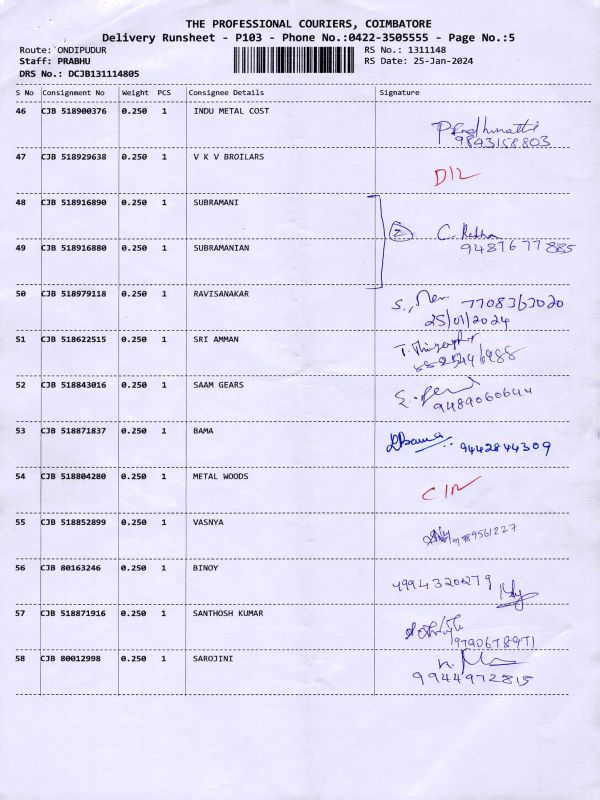 THE PROFESSIONAL COURIERS, COIMBATORE
Delivery Runsheet - P103 - Phone No.:0422-3505555 - Page No.:5
Route: ONDIPUDUR RS No.: 1311148
Staff: PRABHU RS Date: 25-Jan-2024
DRS No.: DCJB131114805
S No Consignment No Weight PCS Consignee Details Signature
46 CJB 518900376 0.250 1 INDU METAL COST
9843158803
47 CJB 518929638 0.250 1 V K V BROILARS D/L
48 CJB 518916890 0.250 1 SUBRAMANI
2 C. Radha
9487677885
49 CJB 518916880 0.250 1 SUBRAMANIAN
50 CJB 518979118 0.250 1 RAVISANAKAR
7708363020
25/01/2024
51 CJB 518622515 0.250 1 SRI AMMAN
52 CJB 518843016 0.250 1 SAAM GEARS
9489060644
53 CJB 518871837 0.250 1 BAMA
9442844309
54 CJB 518804280 0.250 1 METAL WOODS
55 CJB 518852899 0.250 1 VASNYA
9789561227
56 CJB 80163246 0.250 1 BINOY
4994320279
57 CJB 518871916 0.250 1 SANTHOSH KUMAR
9790678971
58 CJB 80012998 0.250 1 SAROJINI
9944972815